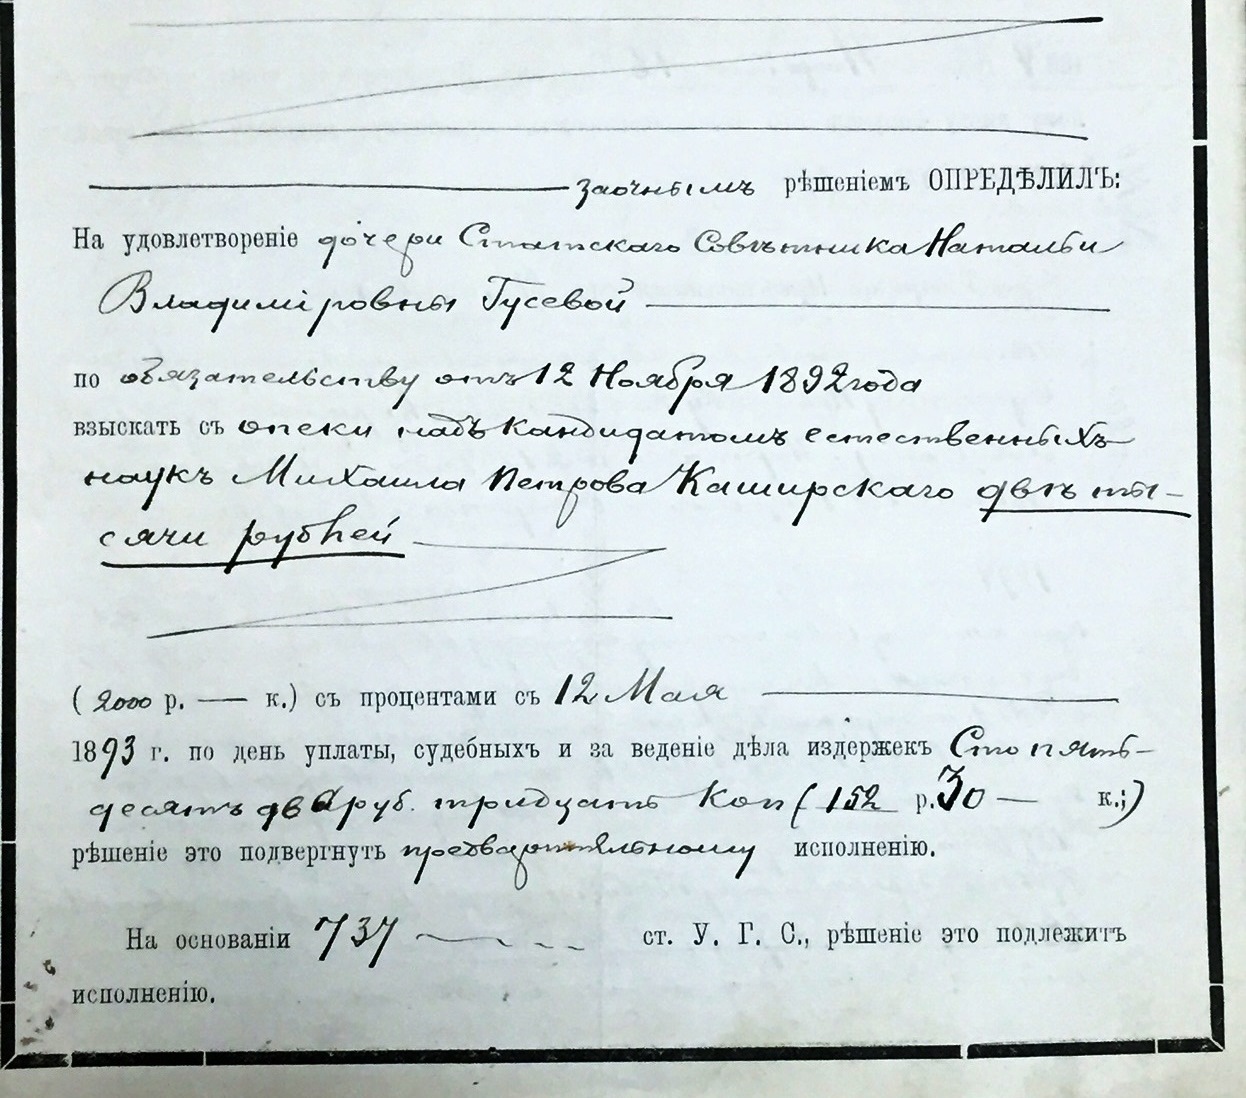 заочнымъ рѣшеніемъ ОПРЕДѢЛИЛЪ:
На удовлетвореніе дочери Статскаго Совѣтника Натальи
Владиміровны Гусевой
по обязательству отъ 12 Ноября 1892 года
взыскать съ опеки надъ кандидатомъ естественныхъ
наукъ Михаила Петрова Каширскаго двѣ ты-
сячи рублей
(2000 р. — к.) съ процентами съ 12 Мая
1893 г. по день уплаты, судебныхъ и за веденіе дѣла издержекъ Сто пять-
десятъ два руб. тридцать коп (152 р. 30 — к.;)
рѣшеніе это подвергнуть предварительному исполненію.
На основаніи 737 ст. У. Г. С., рѣшеніе это подлежитъ
исполненію.